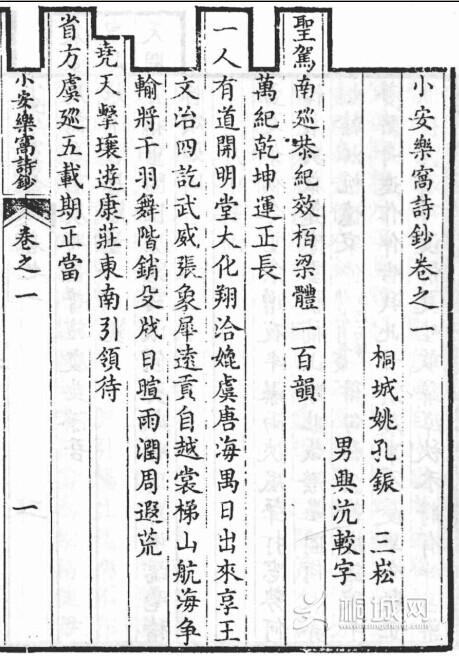 小安樂窩詩鈔卷之一
桐城姚孔鋠 三崧
男興沆較字
聖駕南巡恭紀效栢梁體一百韻
萬紀乾坤運正長
一人有道開明堂大化翔洽媲虞唐海禺日出來享王
文治四訖武威張象犀遠貢自越裳梯山航海争
輸將干羽舞階銷殳戕日暄雨潤周遐荒
堯天擊壤遊康莊東南引領待
省方虞廵五載期正當
小安樂窩詩鈔 卷之一 一
桐城网